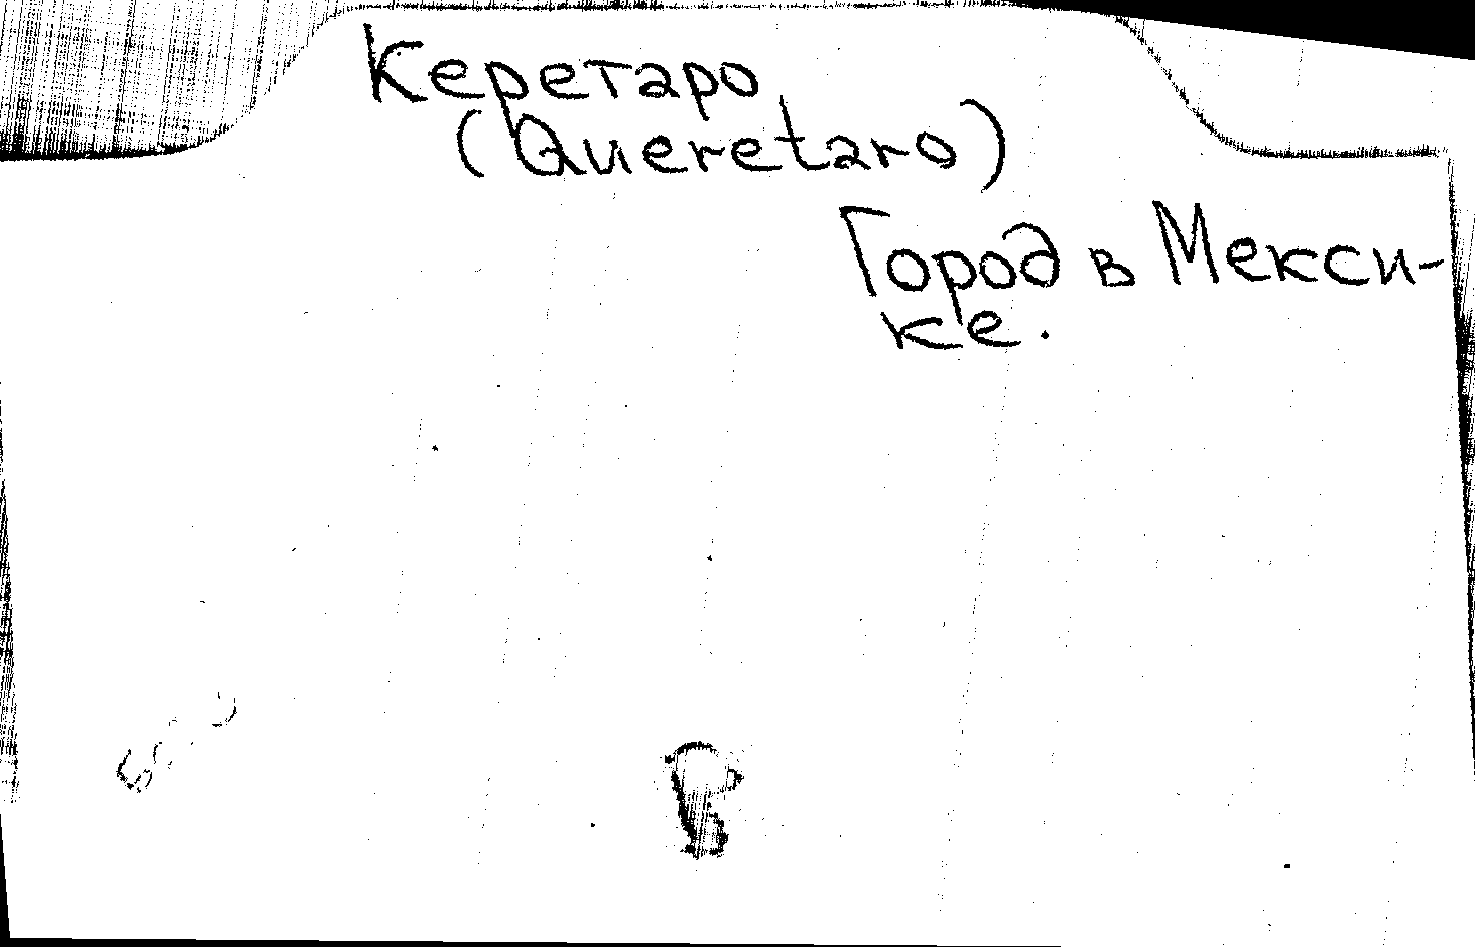 Керетаро
(Queretaro)
Город в Мекси-
ке.